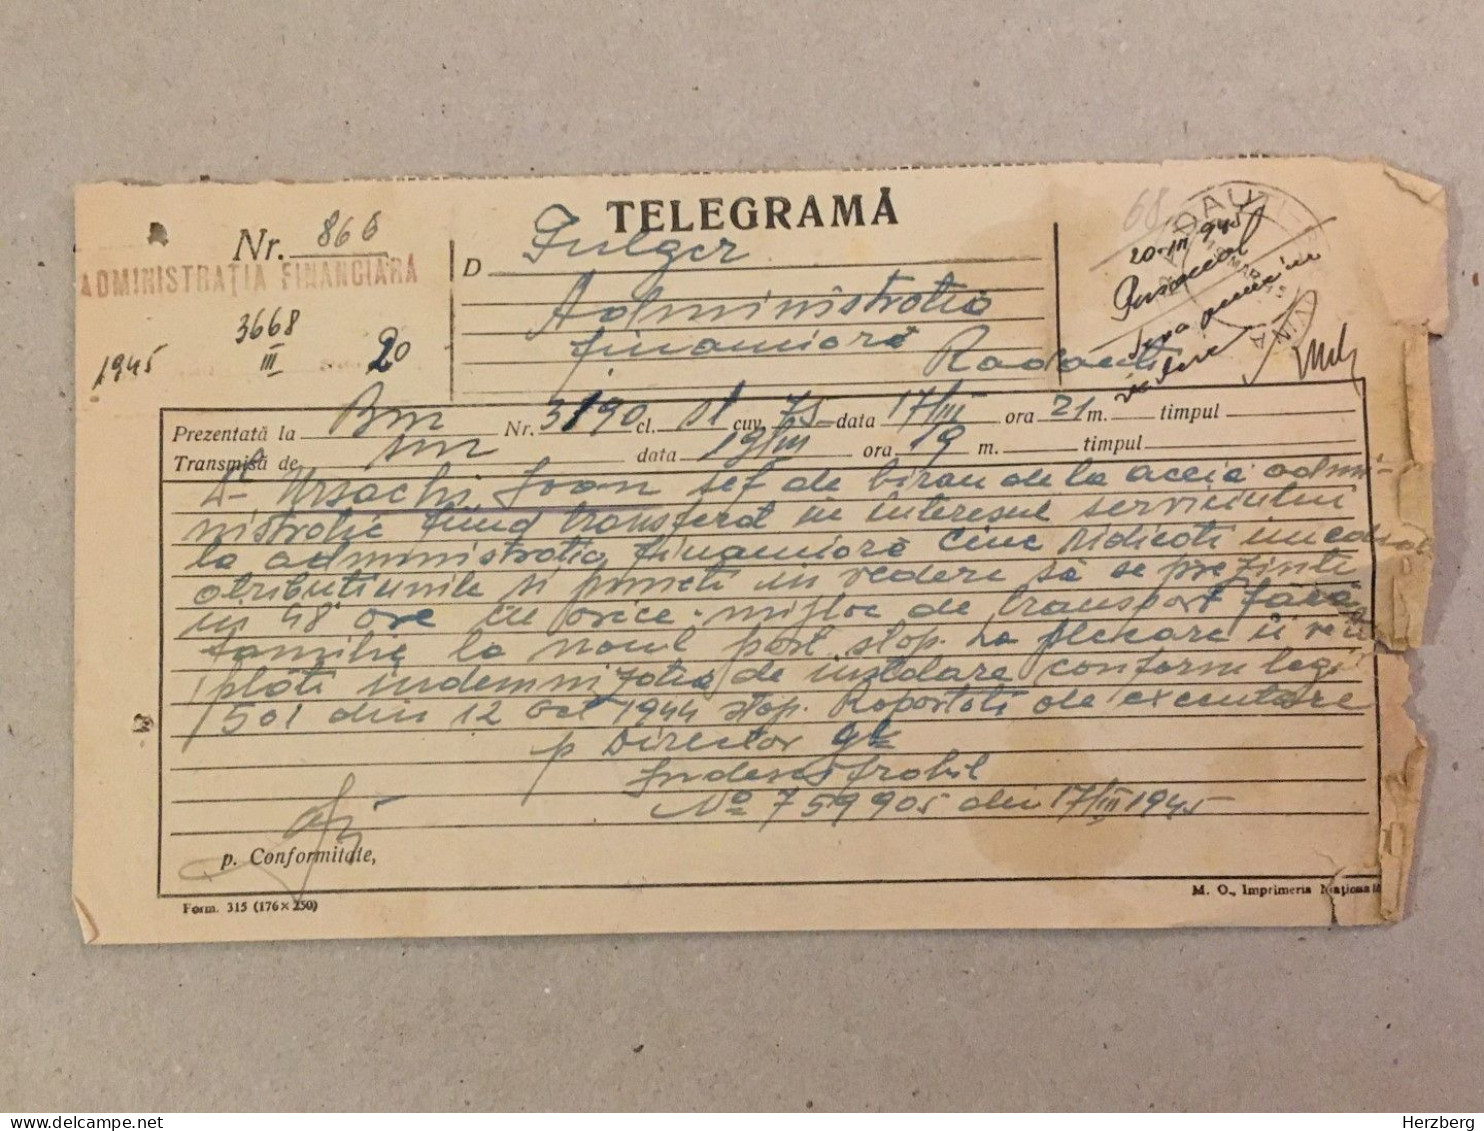 TELEGRAMĂ
Nr. 866
ADMINISTRAȚIA FINANCIARA
3668
III 20
1945
D Fulger
Administratia
financiară
Radauti
68
RADAUTI
19 MAR. 45
20-III 945
Personal
Prezentată la Buc Nr. 3190 cl. st cuv. 75 data 17/III ora 21 m. timpul
Transmisă de data 19/III ora 19 m. timpul
Dl Ursachi Ioan sef de birou de la aceia admi-
nistratie fiind transferat in interesul serviciului
la administratia financiară Ciuc ridicati imediat
atributiunile si puneti in vedere să se prezinte
in 48 ore cu orice mijloc de transport fără
familie la noul post stop. La plecare ii veti
plăti indemnizatia de instalare conform legii
501 din 12 Oct 1944 stop. Raportati de executare
p Director gl
Indescifrabil
No 759905 din 17/III 1945
p. Conformitate,
Form. 315 (176×250)
M. O., Imprimeria Națională
Herzberg